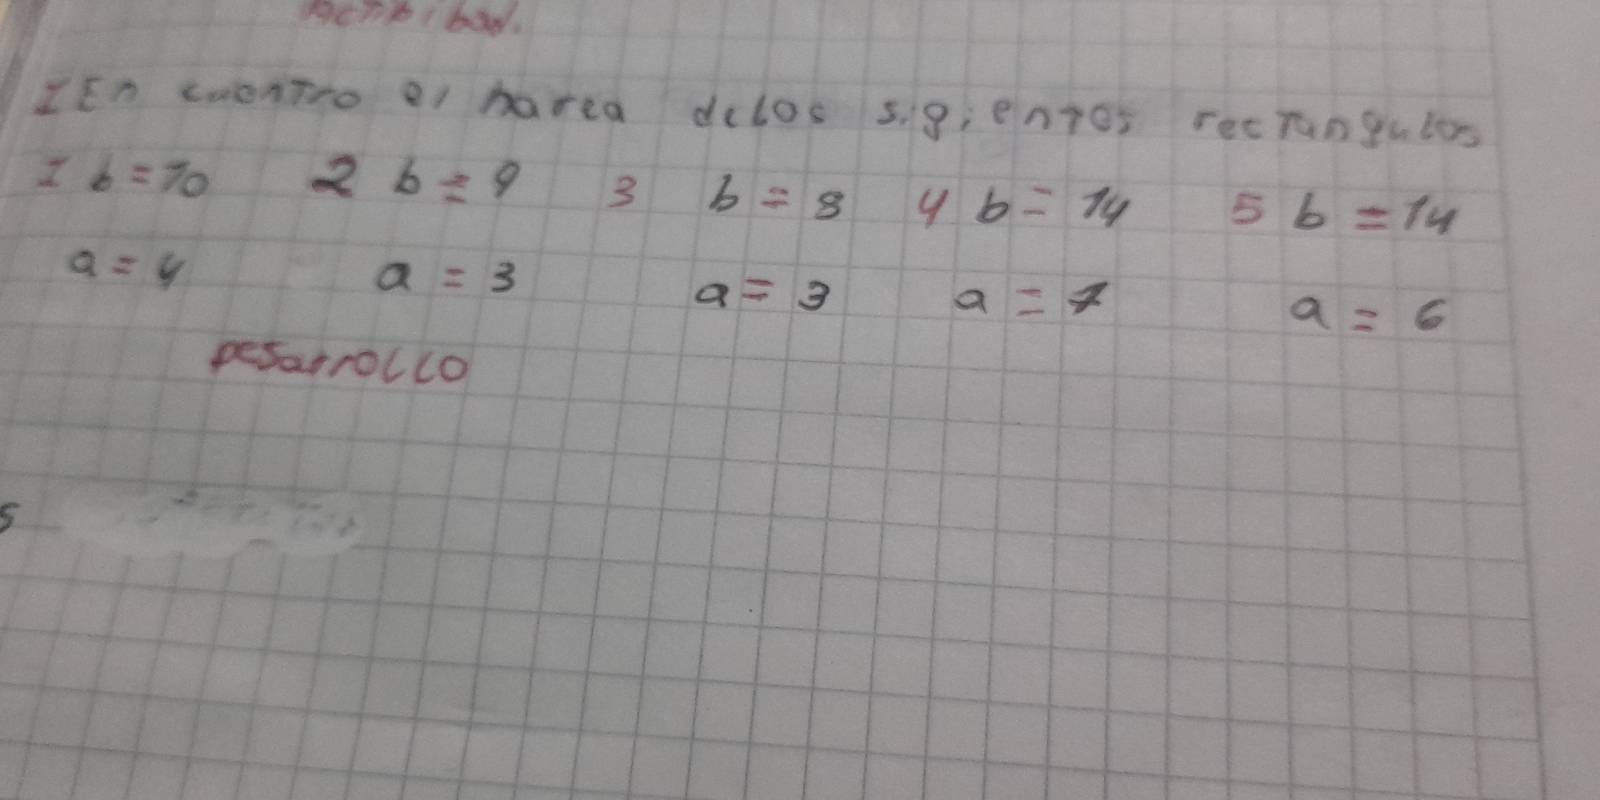 Actibibad.
I En cuentro el harea delos sigientes rectangulos
I b = 10 2 b = 9 3 b = 8 4 b = 14 5 b = 14
a = 4 a = 3 a = 3 a = 7 a = 6
Desarrollo
s